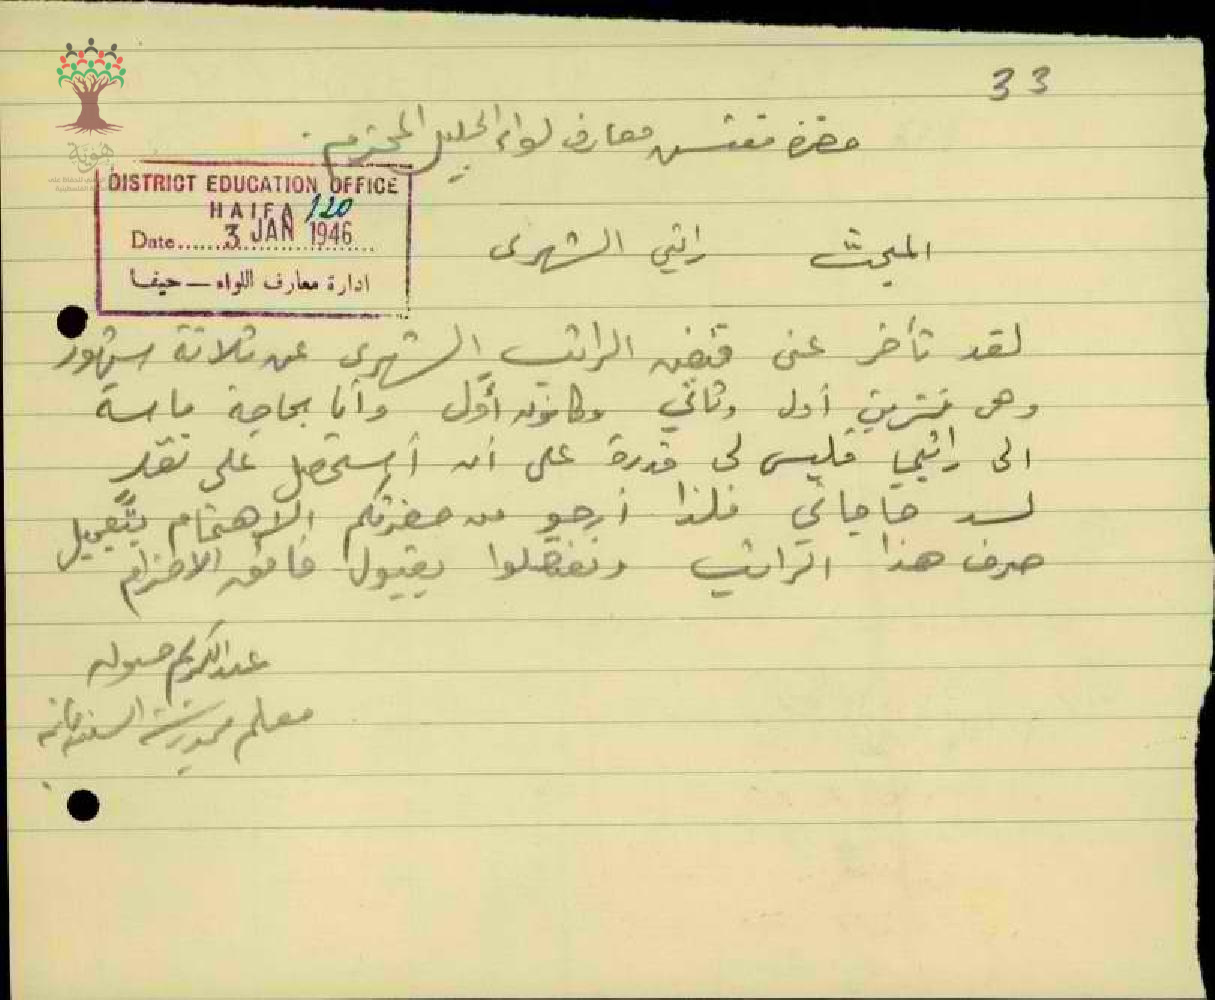 33
حضرة مفتش معارف لواء الجليل المحترم.
DISTRICT EDUCATION OFFICE
HAIFA 120
Date....... 3 JAN 1946
ادارة معارف اللواء — حيفا
المبحث راتبي الشهرى
لقد تأخر عنى قبض الراتب الشهرى عن ثلاثة شهور
وهى تشرين أول وثاني وكانون أول وأنا بحاجة ماسة
الى راتبي فليس لى قدرة على أن أستحصل على نقد
لسد حاجاتي فلذا أرجو من حضرتكم الاهتمام بتعجيل
صرف هذا الراتب وتفضلوا بقبول فائق الاحترام
عبدالكريم
معلم مدرسة السنديانه
هوية